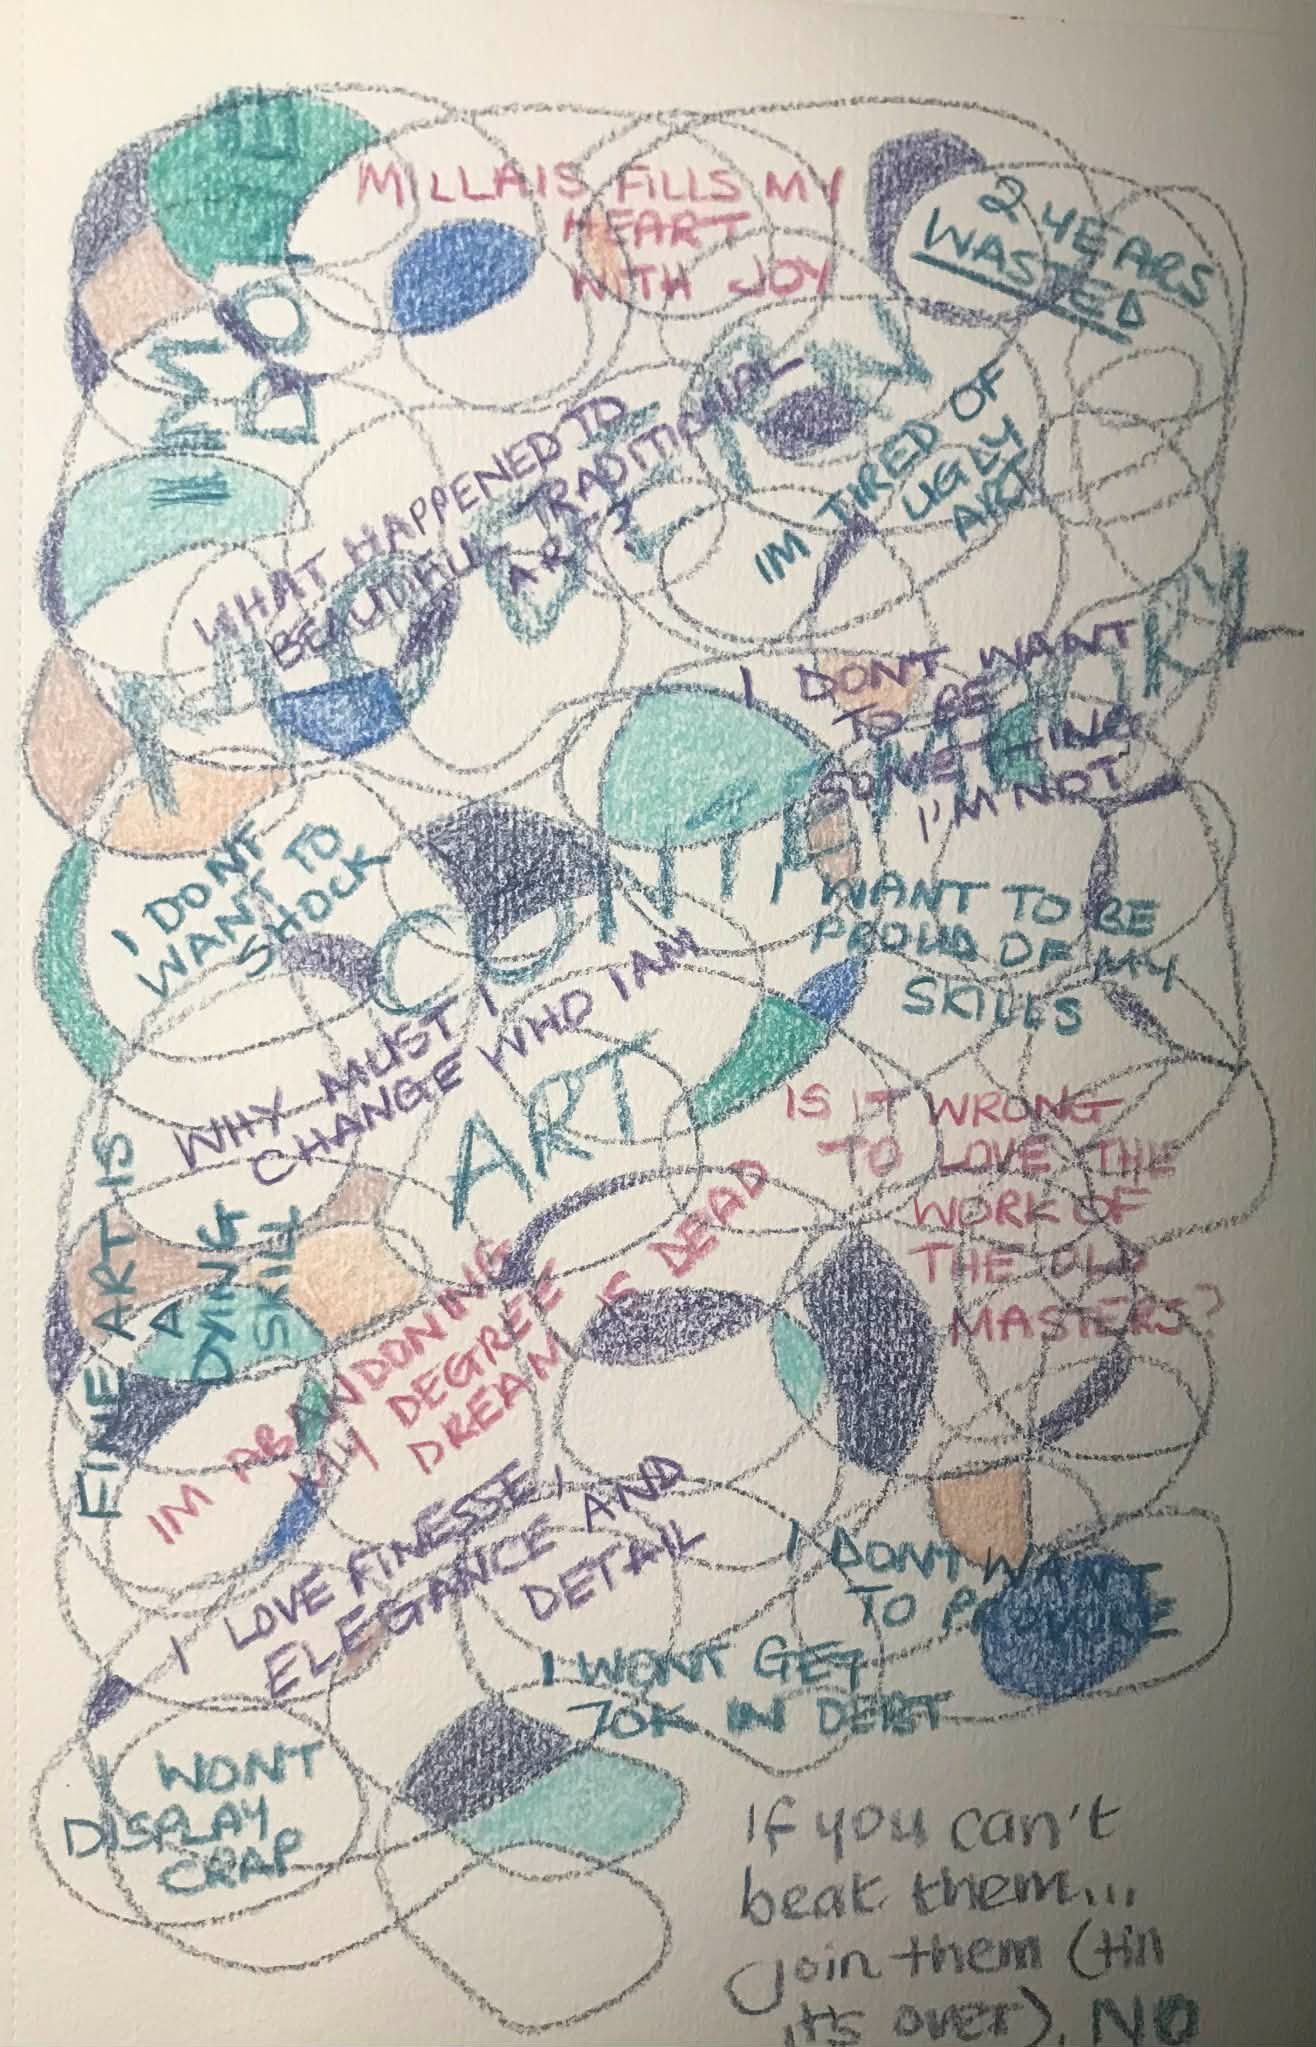 MILLAIS FILLS MY
HEART
WITH JOY
2 YEARS
WASTED
WHAT HAPPENED TO
BEAUTIFUL TRADITIONAL
ART?
IM TIRED OF
UGLY
ART
I DONT WANT
TO BE
SOMETHING
I'M NOT
I DONT
WANT TO
SHOCK
I WANT TO BE
PROUD OF MY
SKILLS
WHY MUST I
CHANGE WHO I AM
ART
IS DEAD
IS IT WRONG
TO LOVE THE
WORK OF
THE OLD
MASTERS?
FINE ART IS
A
DYING
SKILL
IM ABANDONING
MY DEGREE
DREAM
I LOVE FINESSE,
ELEGANCE AND
DETAIL
I DONT WANT
TO
I WONT GET
70K IN DEBT
I WONT
DISPLAY
CRAP
If you can't
beat them...
join them (till
its over). NO